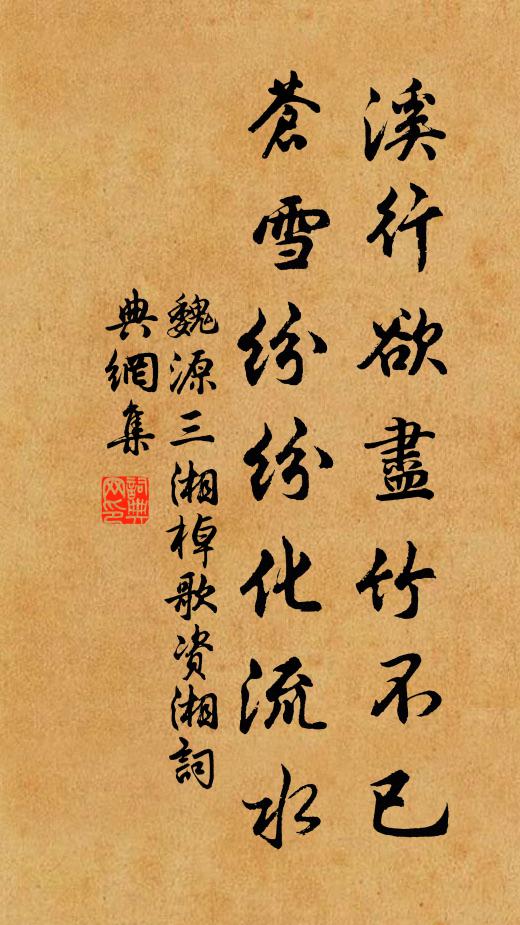 溪行欲盡竹不已
蒼雪紛紛化流水
魏源三湘棹歌资湘詞
典網集
詞典
网印